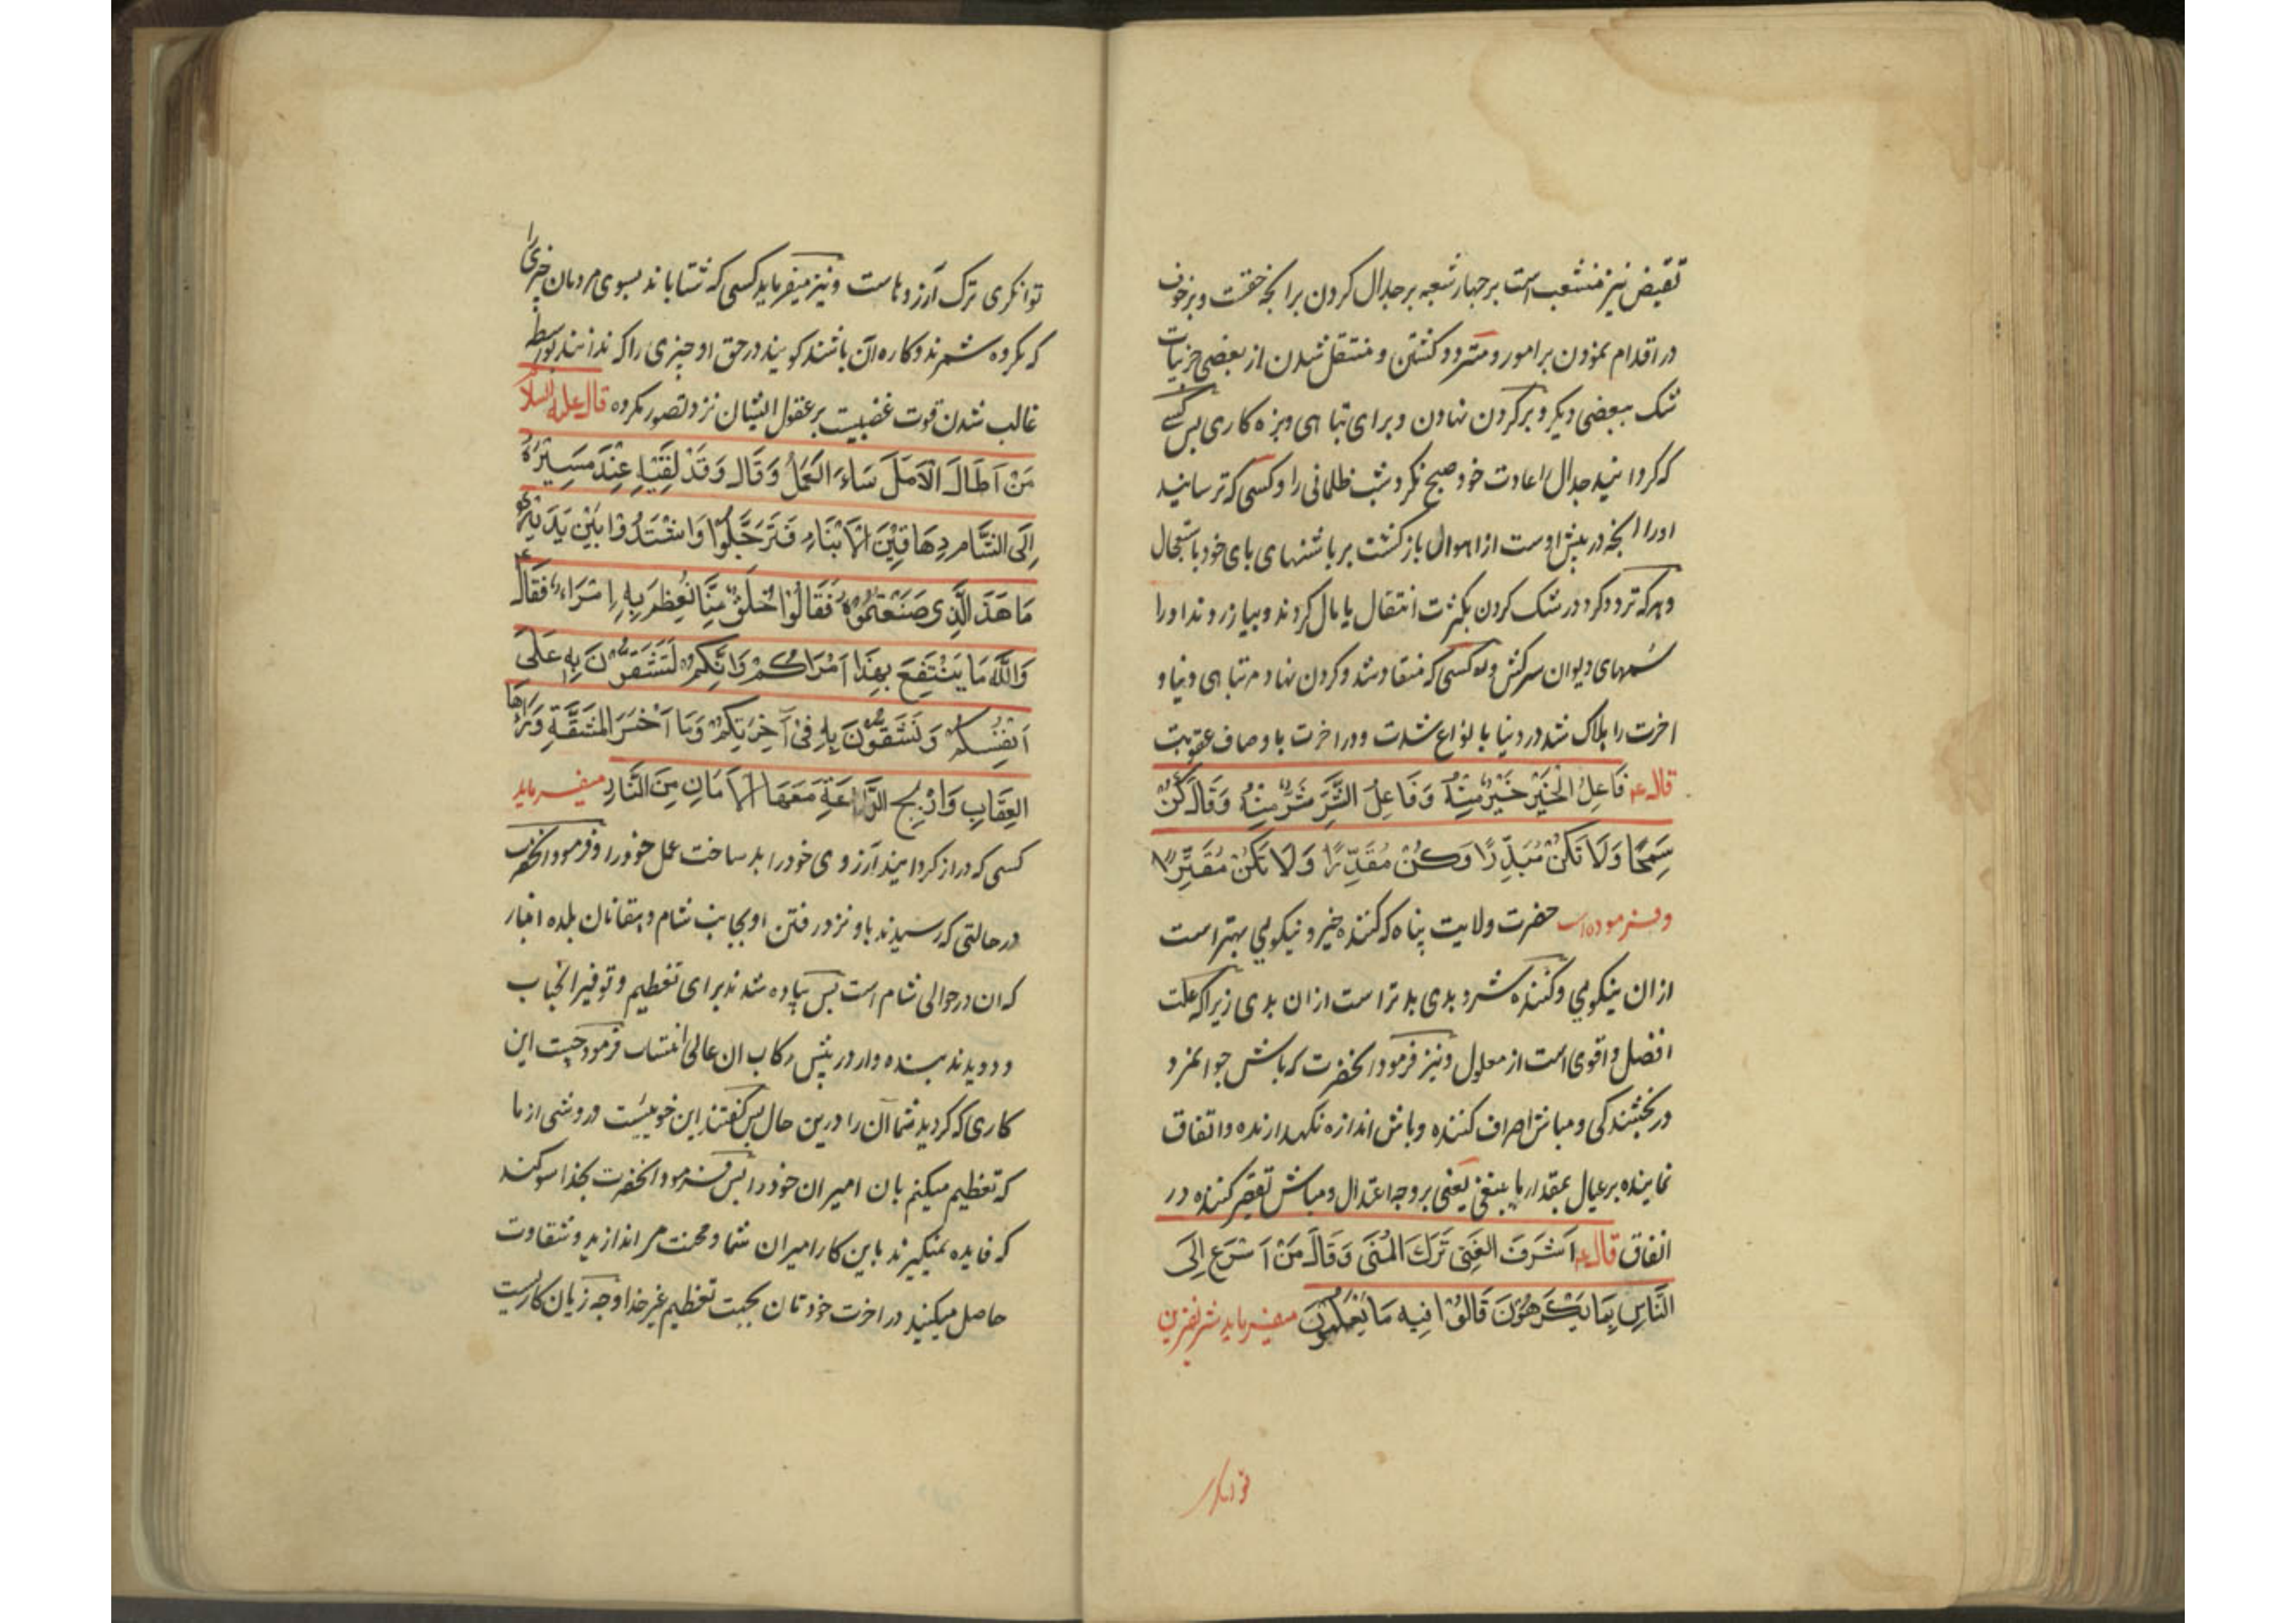 نقیض نیز منشعب است بر چهار شعبه بر جدال کردن برانچه خفتست و بر خوف
در اقدام نمودن بر امور و متردد کشتن و منتقل شدن از بعضی جزئیات
شک ببعضی دیکر و بر کردن نهادن و برای تباهی و بزه کاری بس کسی
که کردانید جدال را عادت خود صبح نکرد شب ظلمانی را و کسی که ترسانید
اورا انچه در پیش اوست از اهوال بازکشت بر پاشنهای پای خود باستعجال
و هر که تردد کرد در شک کردن بکثرت انتقال پایمال کردند و بیازردند اورا
سمهای دیوان سرکش و هر کسی که منقاد شد و کردن نهاد مر تباهی دنیا و
اخرت را هلاک شد در دنیا بانواع شدت و در اخرت باوصاف عقوبت
قال ع فَاعِلُ الْخَيْرِ خَيْرٌ مِنْهُ وَفَاعِلُ الشَّرِّ شَرٌّ مِنْهُ وَقَالَ كُنْ
سَمِحًا وَلَا تَكُنْ مُبَذِّرًا وَكُنْ مُقَدِّرًا وَلَا تَكُنْ مُقَتِّرًا
و فرموده است حضرت ولایت پناه که کننده خیر و نیکویی بهتر است
از ان نیکویی و کننده شر و بدی بدتر است از ان بدی زیرا که علت
افضل و اقوی است از معلول و نیز فرمود انحضرت که باش جوانمرد
در بخشندکی و مباش اصراف کننده و باش اندازه نکهدارنده و اتفاق
نماینده بر عیال بمقدار ما ینبغی یعنی بر وجه اعتدال و مباش تقصیر کننده در
انفاق قال ع اَشْرَفَ الغِنَى تَرَكَ الْمُنَى وَقَالَ مَنْ اَسْرَعَ اِلَى
النَّاسِ بِمَا يَكْرَهُوْنَ قَالُوْا فِيهِ مَا يَعْلَمُونَ میفرماید شریفترین
توانکری
توانکری ترک آرزوهاست و نیز میفرماید کسی که شتاباند بسوی مردمان چیزی را
که مکروه شمرند و کاره آن باشند کویند در حق او چیزی را که ندانند بواسطه
غالب شدن قوت غضبیت بر عقول ایشان نزد تصور مکروه قال علیه السلام
مَنْ اَطَالَ الْاَمَلَ سَاءَ الْعَمَلُ وَقَالَ وَقَدْ لَقِيَهُ عِنْدَ مَسِيْرِهِ
اِلَى الشَّامِ دِهَاقِيْنَ الْاَنْبَارِ فَتَرَجَّلُوْا وَاشْتَدُّوْا بَيْنَ يَدَيْهِ
مَا هَذَا الَّذِي صَنَعْتُمُوْهُ فَقَالُوْا خُلُقٌ مِنَّا نُعَظِّمُ بِهِ اُمَرَاءَ فَقَالَ
وَاللّٰهِ مَا يَنْتَفِعُ بِهَذَا اُمَرَاكُمْ وَاِنَّكُمْ لَتَشُقُّوْنَ بِهِ عَلَى
اَنْفُسِكُمْ وَتَشْقُوْنَ بِهِ فِى آخِرَتِكُمْ وَمَا اَخْسَرَ الْمَشَقَّةِ وَرَاءَهَا
العِقَابِ وَارْبِحِ الدَّاعَةِ مَعَهَا الْاَمَانِ مِنَ النَّارِ میفرماید
کسی که دراز کردانید آرزوی خودرا بد ساخت عمل خودرا و فرمود انحضرت
در حالتی که رسیدند باو نزد رفتن او بجانب شام دهقانان بلده انبار
که ان در حوالی شام است بس پیاده شدند برای تعظیم و توقیر انجناب
و دویدند بنده وار در پیش رکاب ان عالی انتساب فرمود چیست این
کاری که کردید شما آن را درین حال بس کفتند این خوییست و روشی از ما
که تعظیم میکنم بان امیران خودرا بس فرمود انحضرت بخدا سوکند
که فایده نمیکیرند باین کار امیران شما و محنت مر اندازید و شقاوت
حاصل میکنید در اخرت خودتان بجهت تعظیم غیر خدا وچه زیان کاریست